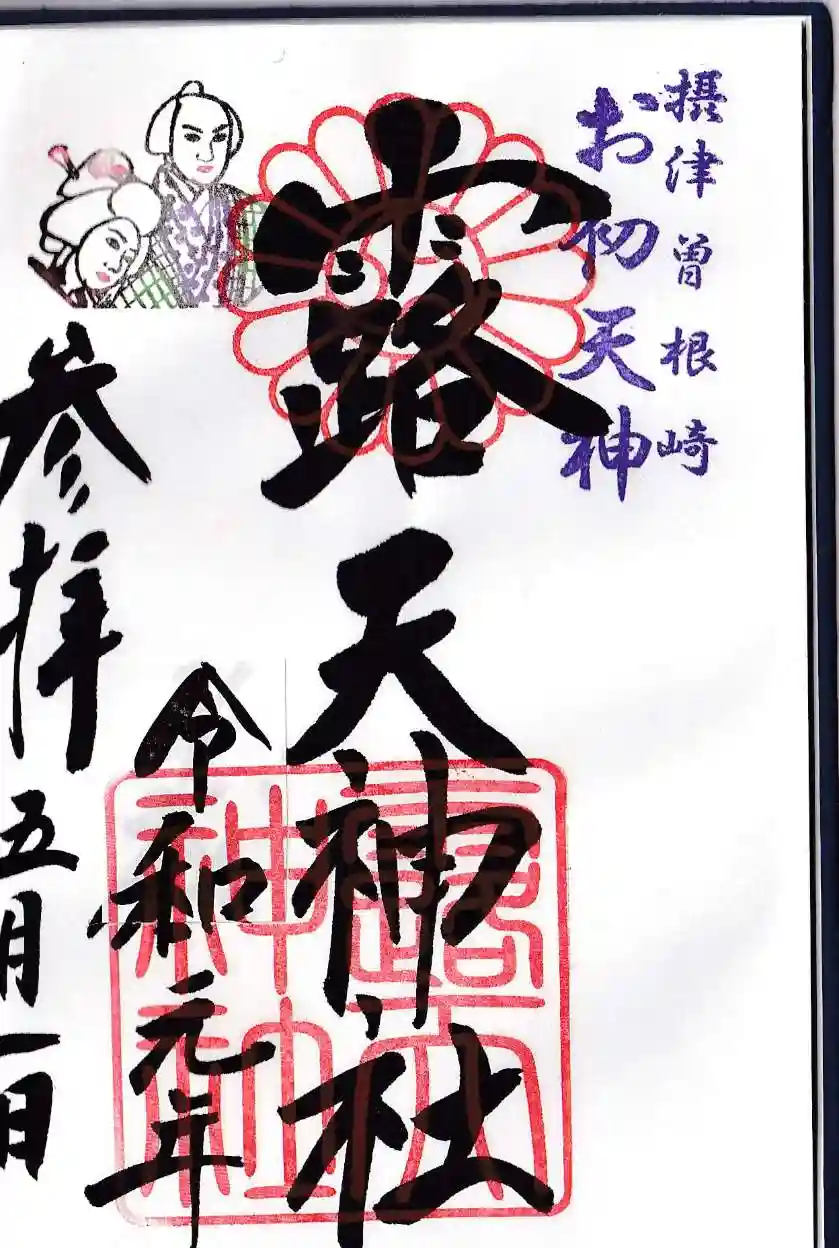 摂津曽根崎
お初天神
露天神社
令和元年
参拝 五月一日
露天神社